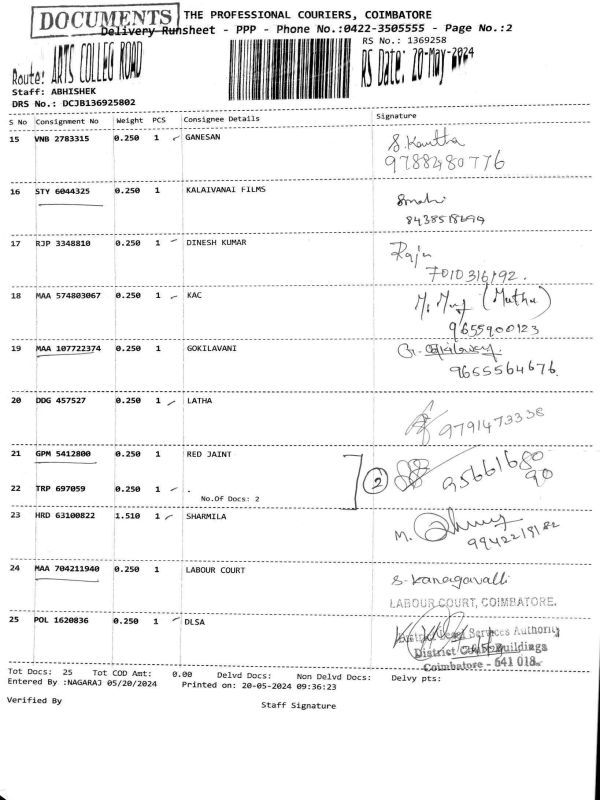 DOCUMENTS
THE PROFESSIONAL COURIERS, COIMBATORE
Delivery Runsheet - PPP - Phone No.:0422-3505555 - Page No.:2
RS No.: 1369258
Route: ARTS COLLEG ROAD
RS Date: 20-May-2024
Staff: ABHISHEK
DRS No.: DCJB136925802
S No Consignment No Weight PCS Consignee Details Signature
15 VNB 2783315 0.250 1 GANESAN
9788480776
16 STY 6044325 0.250 1 KALAIVANAI FILMS
17 RJP 3348810 0.250 1 DINESH KUMAR Raju
7010316192.
18 MAA 574803067 0.250 1 KAC (Muthu)
9655900123
19 MAA 107722374 0.250 1 GOKILAVANI
9655564676.
20 DDG 457527 0.250 1 LATHA
9791473338
21 GPM 5412800 0.250 1 RED JAINT
2 95661680
90
22 TRP 697059 0.250 1 .
No.Of Docs: 2
23 HRD 63100822 1.510 1 SHARMILA M.
24 MAA 704211940 0.250 1 LABOUR COURT S. Kanagavalli
LABOUR COURT, COIMBATORE.
25 POL 1620836 0.250 1 DLSA
District Legal Services Authority
District Court Buildings
Coimbatore - 641 018.
Tot Docs: 25 Tot COD Amt: 0.00 Delvd Docs: Non Delvd Docs: Delvy pts:
Entered By :NAGARAJ 05/20/2024 Printed on: 20-05-2024 09:36:23
Verified By Staff Signature